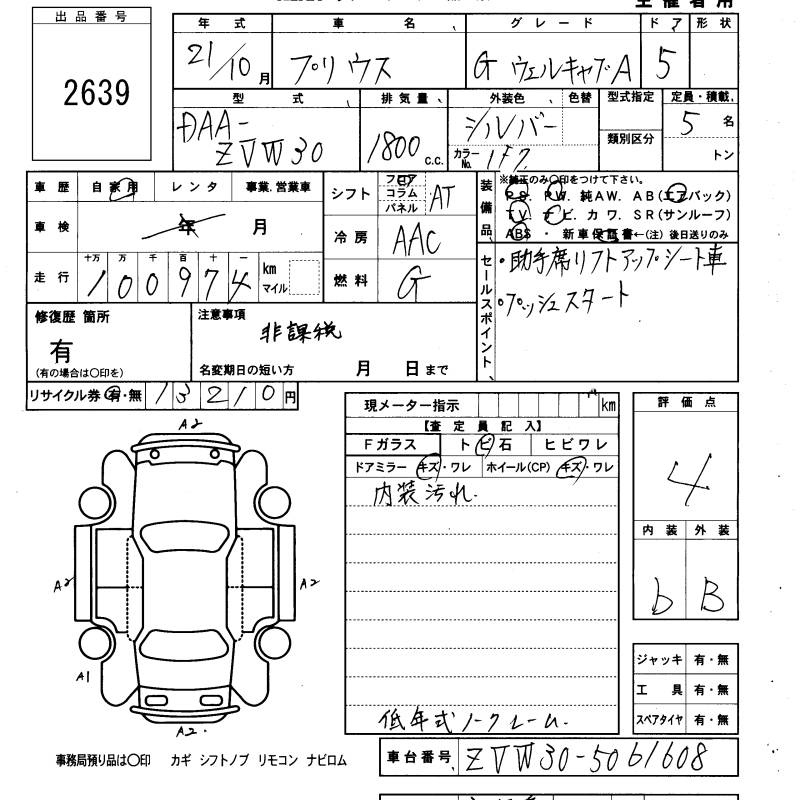 主催者用
出品番号
2639
年式 車名 グレード ドア 形状
21/10月 プリウス G ウェルキャブA 5
型式 排気量 外装色 色替 型式指定 定員・積載
DAA-
ZVW30 1800 c.c. シルバー 5名
カラーNo. 1F7 類別区分 トン
車歴 自家用 レンタ 事業.営業車
シフト フロア コラム パネル AT
装備品 ※純正のみ〇印をつけて下さい。
PS. PW. 純AW. AB(エアバック)
TV. ナビ. カワ. SR(サンルーフ)
ABS ・ 新車保証書←(注) 後日送りのみ
車検 年 月
冷房 AAC
走行 十万 万 千 百 十 一
100974 km マイル
燃料 G
セールスポイント
・助手席リフトアップシート車
・プッシュスタート
修復歴 箇所
有
(有の場合は〇印を)
注意事項
非課税
名変期日の短い方 月 日まで
リサイクル券 有・無 13210円
現メーター指示 km
【査定員記入】
Fガラス トビ石 ヒビワレ
ドアミラー キズ・ワレ ホイール(CP) キズ・ワレ
内装汚れ.
低年式ノークレーム.
評価点
4
内装 外装
b B
A2
A2 A2
A1
A2.
ジャッキ 有・無
工具 有・無
スペアタイヤ 有・無
事務局預り品は〇印 カギ シフトノブ リモコン ナビロム
車台番号 ZVW30-5061608